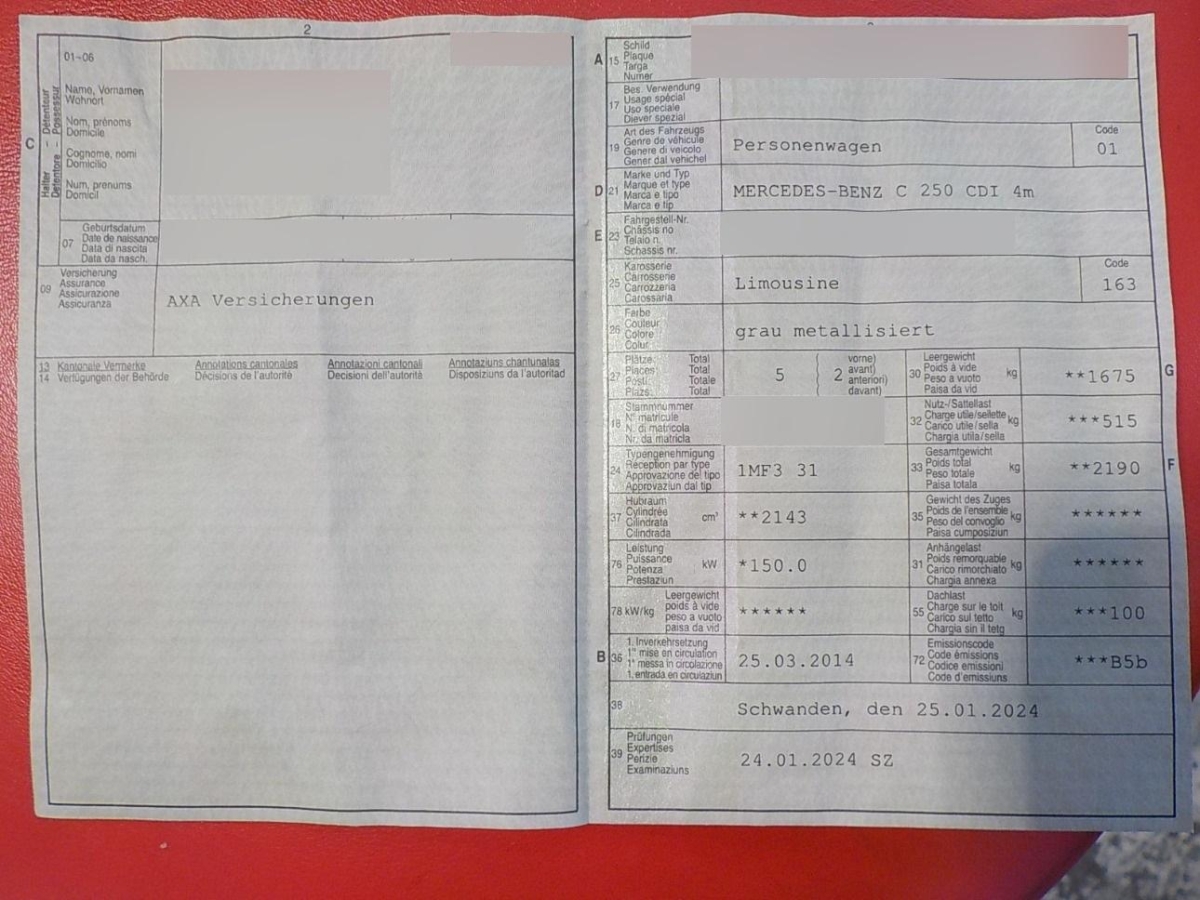 2
01-06
C
Halter - Détenteur
Detentore - Possessur
Name, Vornamen
Wohnort
Nom, prénoms
Domicile
Cognome, nomi
Domicilio
Num, prenums
Domicil
07
Geburtsdatum
Date de naissance
Data di nascita
Data da nasch.
09
Versicherung
Assurance
Assicurazione
Assicuranza
AXA Versicherungen
13 Kantonale Vermerke Annotations cantonales Annotazioni cantonali Annotaziuns chantunalas
14 Verfügungen der Behörde Décisions de l'autorité Decisioni dell'autorità Disposiziuns da l'autoritad
A 15
Schild
Plaque
Targa
Numer
17
Bes. Verwendung
Usage spécial
Uso speciale
Diever spezial
19
Art des Fahrzeugs
Genre de véhicule
Genere di veicolo
Gener dal vehichel
Personenwagen
Code
01
D 21
Marke und Typ
Marque et type
Marca e tipo
Marca e tip
MERCEDES-BENZ C 250 CDI 4m
E 23
Fahrgestell-Nr.
Châssis no
Telaio n.
Schassis nr.
25
Karosserie
Carrosserie
Carrozzeria
Carossaria
Limousine
Code
163
26
Farbe
Couleur
Colore
Colur
grau metallisiert
27
Plätze: Total
Places: Total
Posti: Totale
Plazs: Total
5 ( 2
vorne)
avant)
anteriori)
davant)
30
Leergewicht
Poids à vide
Peso a vuoto
Paisa da vid
kg
**1675
G
18
Stammnummer
N° matricule
N. di matricola
Nr. da matricla
32
Nutz-/Sattellast
Charge utile/sellette
Carico utile/sella
Chargia utila/sella
kg
***515
24
Typengenehmigung
Réception par type
Approvazione del tipo
Approvaziun dal tip
1MF3 31
33
Gesamtgewicht
Poids total
Peso totale
Paisa totala
kg
**2190
F
37
Hubraum
Cylindrée
Cilindrata
Cilindrada
cm³
**2143
35
Gewicht des Zuges
Poids de l'ensemble
Peso del convoglio
Paisa cumposiziun
kg
******
76
Leistung
Puissance
Potenza
Prestaziun
kW
*150.0
31
Anhängelast
Poids remorquable
Carico rimorchiato
Chargia annexa
kg
******
78 kW/kg
Leergewicht
poids à vide
peso a vuoto
paisa da vid
******
55
Dachlast
Charge sur le toit
Carico sul tetto
Chargia sin il tetg
kg
***100
B 36
1. Inverkehrsetzung
1re mise en circulation
1a messa in circolazione
1. entrada en circulaziun
25.03.2014
72
Emissionscode
Code émissions
Codice emissioni
Code d'emissiuns
***B5b
38
Schwanden, den 25.01.2024
39
Prüfungen
Expertises
Perizie
Examinaziuns
24.01.2024 SZ